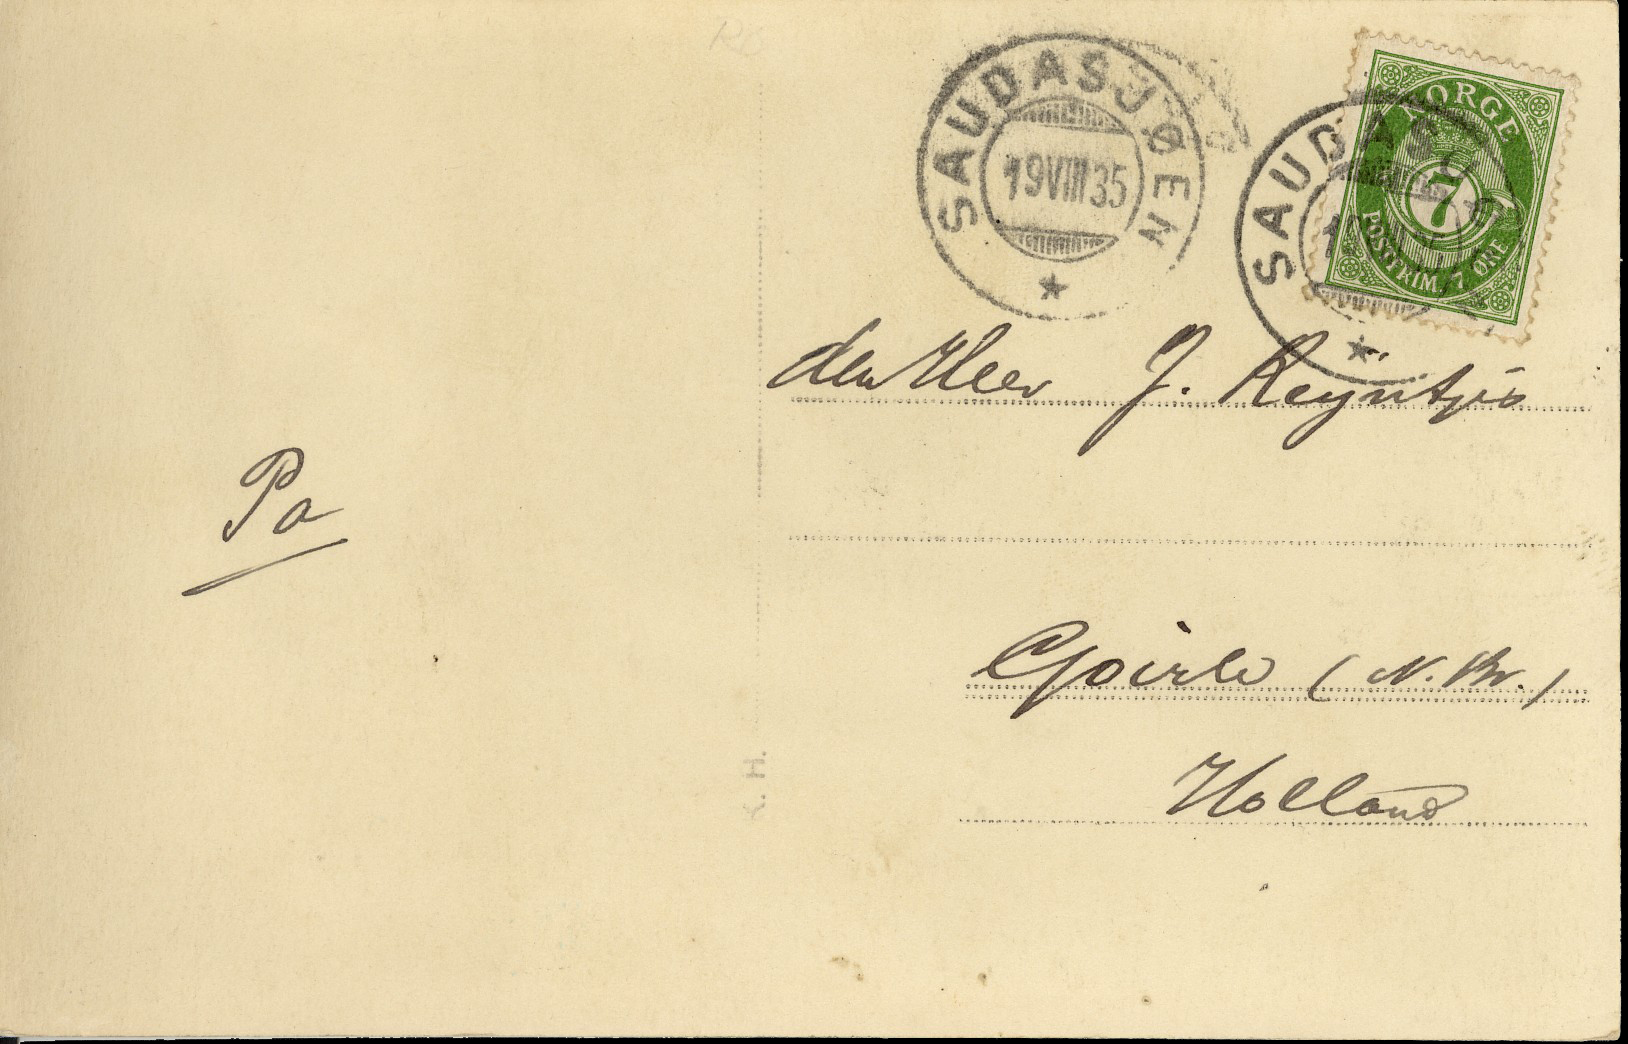 SAUDASJØEN
19 VIII 35
SAUDASJØ
NORGE
7
POSTFRIM. 7 ØRE
den Heer J. Reijntjes
Pa
Goirle (N. Br.)
Holland
K. H.